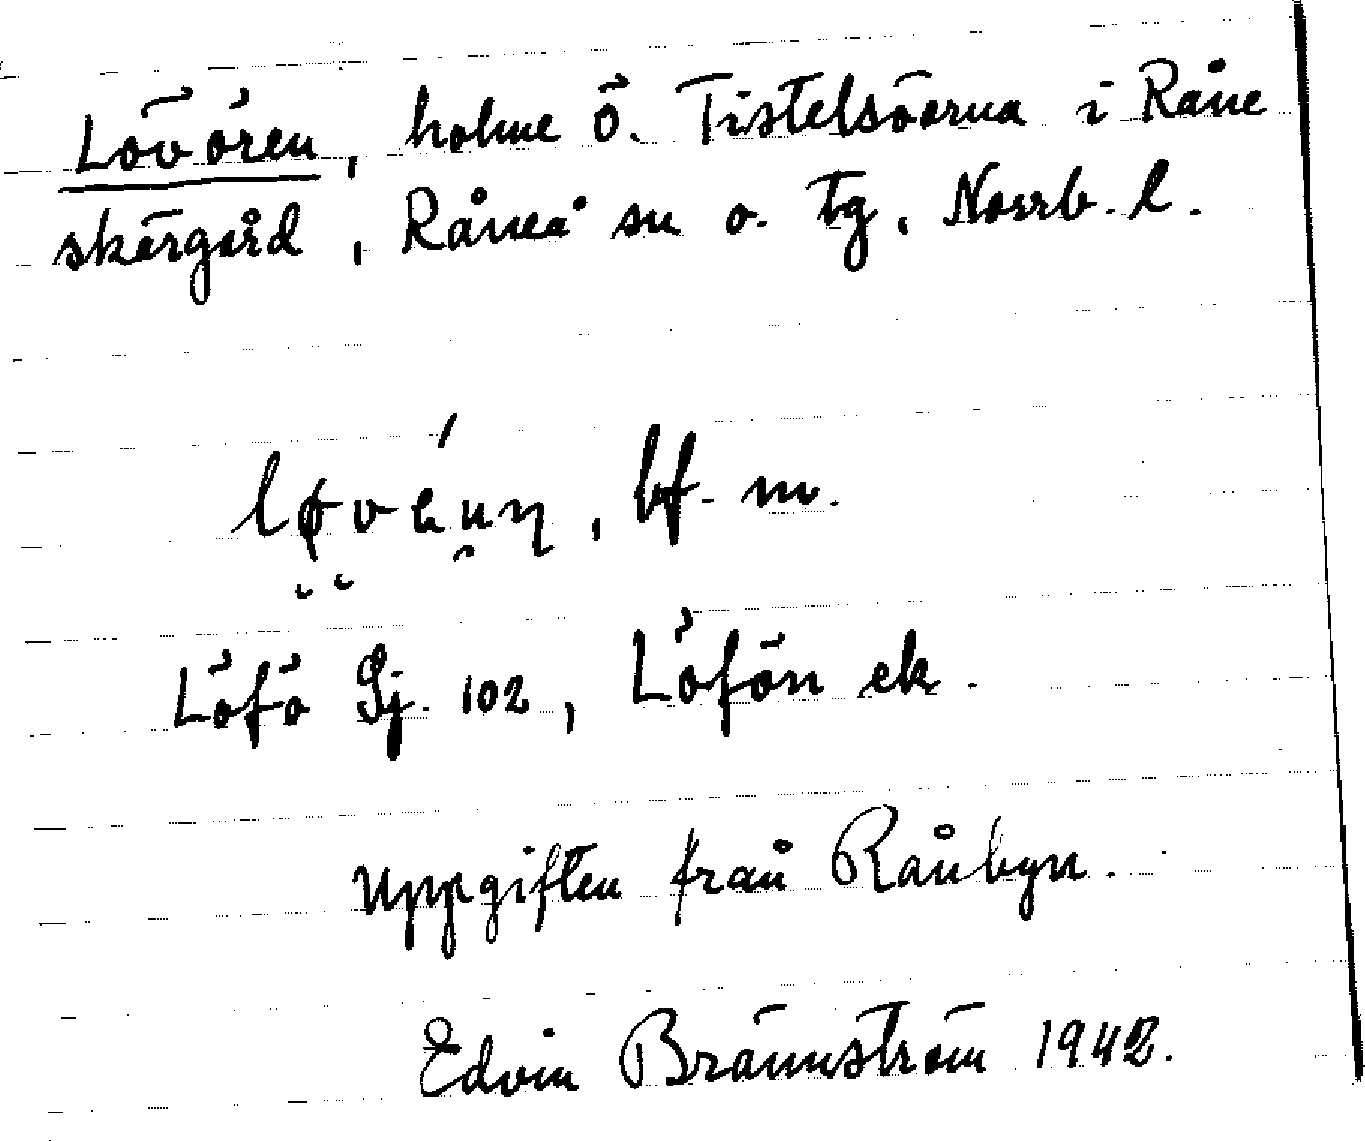 Lövören, holme ö. Tistelsöarna i Råne
skärgård, Råneå sn o. tg, Norrb. l.
bf. m.
Löfö Sj. 102, Löfön ek.
Uppgiften från Rånbyn.
Edvin Brännström 1942.